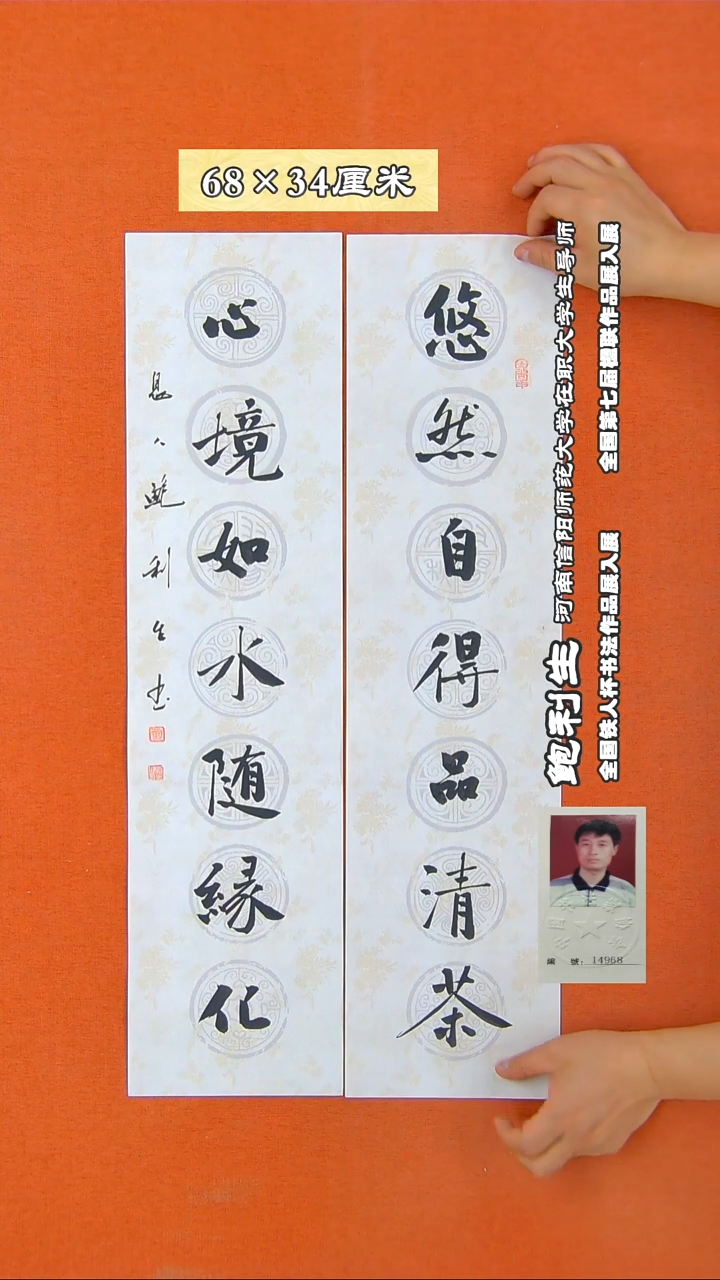 68×34厘米
悠然自得品清茶
心境如水随缘化
鲍利生书
鲍利生 河南信阳师范大学在职大学生导师
全国铁人杯书法作品展入展 全国第七届楹联作品展入展
編 號: 14968